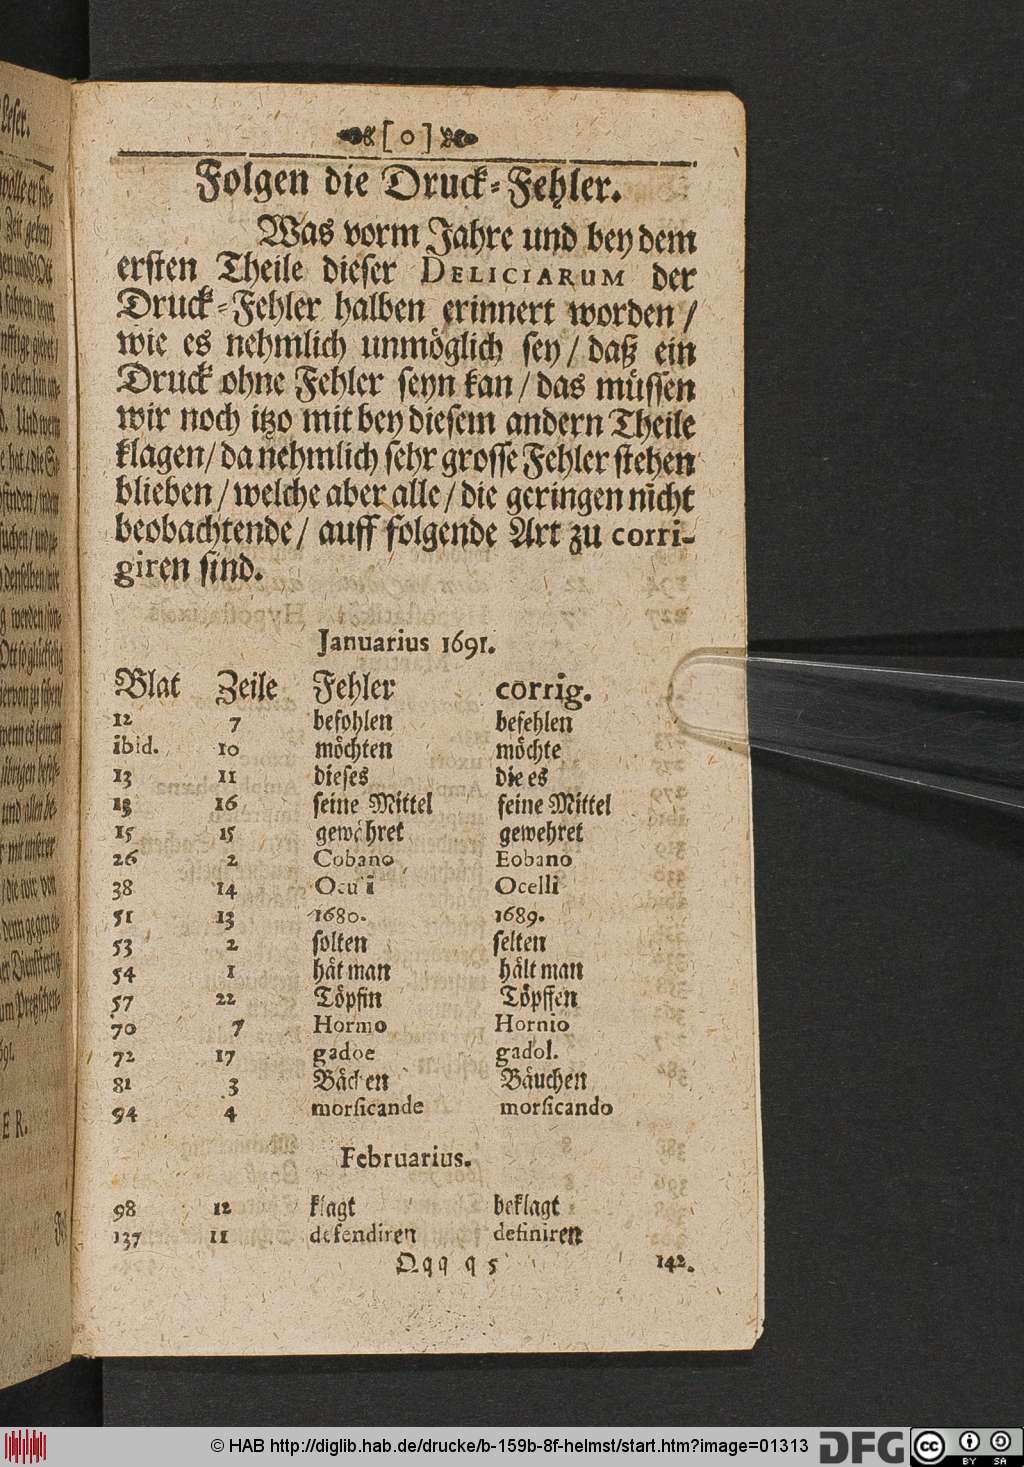 [ o ]
Folgen die Druck-Fehler.
Was vorm Jahre und bey dem
ersten Theile dieser DELICIARUM der
Druck-Fehler halben erinnert worden/
wie es nehmlich unmöglich sey/ daß ein
Druck ohne Fehler seyn kan/ das müssen
wir noch itzo mit bey diesem andern Theile
klagen/ da nehmlich sehr grosse Fehler stehen
blieben/ welche aber alle/ die geringen nicht
beobachtende/ auff folgende Art zu corri-
giren sind.
Januarius 1691.
Blat Zeile Fehler corrig.
12 7 befohlen befehlen
ibid. 10 möchten möchte
13 11 dieses die es
13 16 seine Mittel feine Mittel
15 15 gewähret gewehret
26 2 Cobano Eobano
38 14 Ocu i Ocelli
51 13 1680. 1689.
53 2 solten selten
54 1 hät man hält man
57 22 Töpfin Töpffen
70 7 Hormo Hornio
72 17 gadoe gadol.
81 3 Bäcken Bäuchen
94 4 morsicande morsicando
Februarius.
98 12 klagt beklagt
137 11 defendiren definiren
Qqq q 5 142.
© HAB http://diglib.hab.de/drucke/b-159b-8f-helmst/start.htm?image=01313 DFG cc BY SA